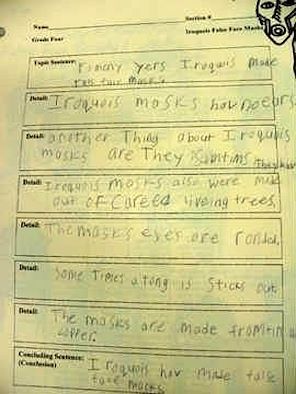 Name
Section #
Grade Four
Iroquois False Face Masks
Topic Sentence: F many yers Iroquis made
fals face masks.
Detail: Iroquois masks hav no ears
Detail: another Thing about Iroquois
masks are They They hav
Detail: Iroquois masks also were made
out of careed liveing trees.
Detail: The masks eyes are ronded.
Detail: Some Times a tong is sticks out
Detail: The masks are made from tin and
copper.
Concluding Sentence: Iroquois hav made false
(Conclusion) face masks